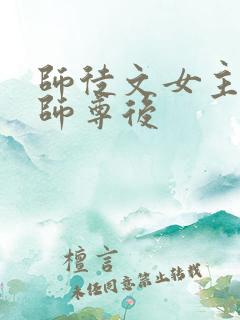 師徒文女主
師尊後
檀言
未任同意禁止轉載